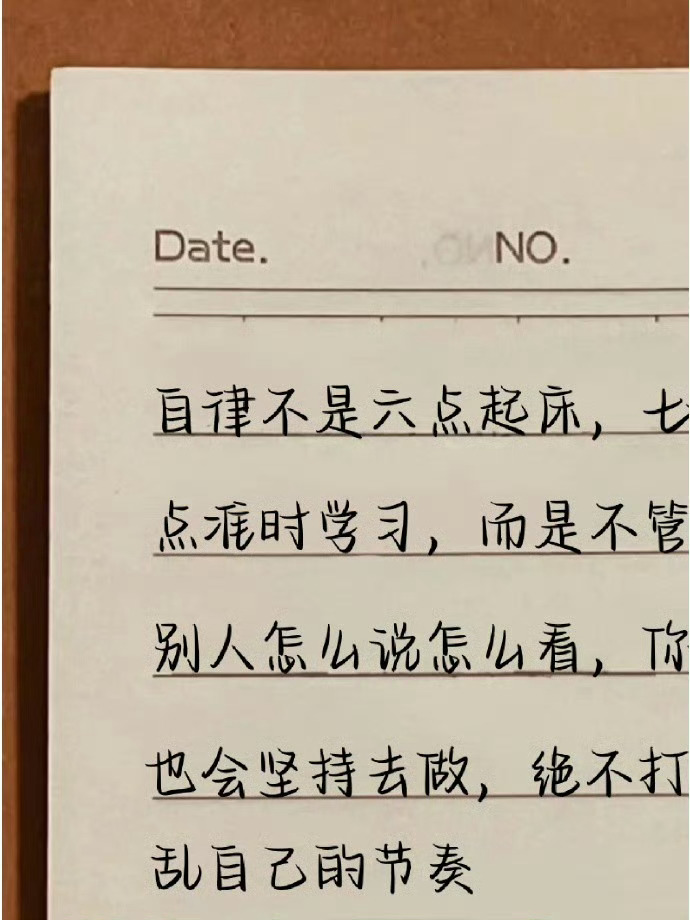 Date. NO.
自律不是六点起床，七
点准时学习，而是不管
别人怎么说怎么看，你
也会坚持去做，绝不打
乱自己的节奏